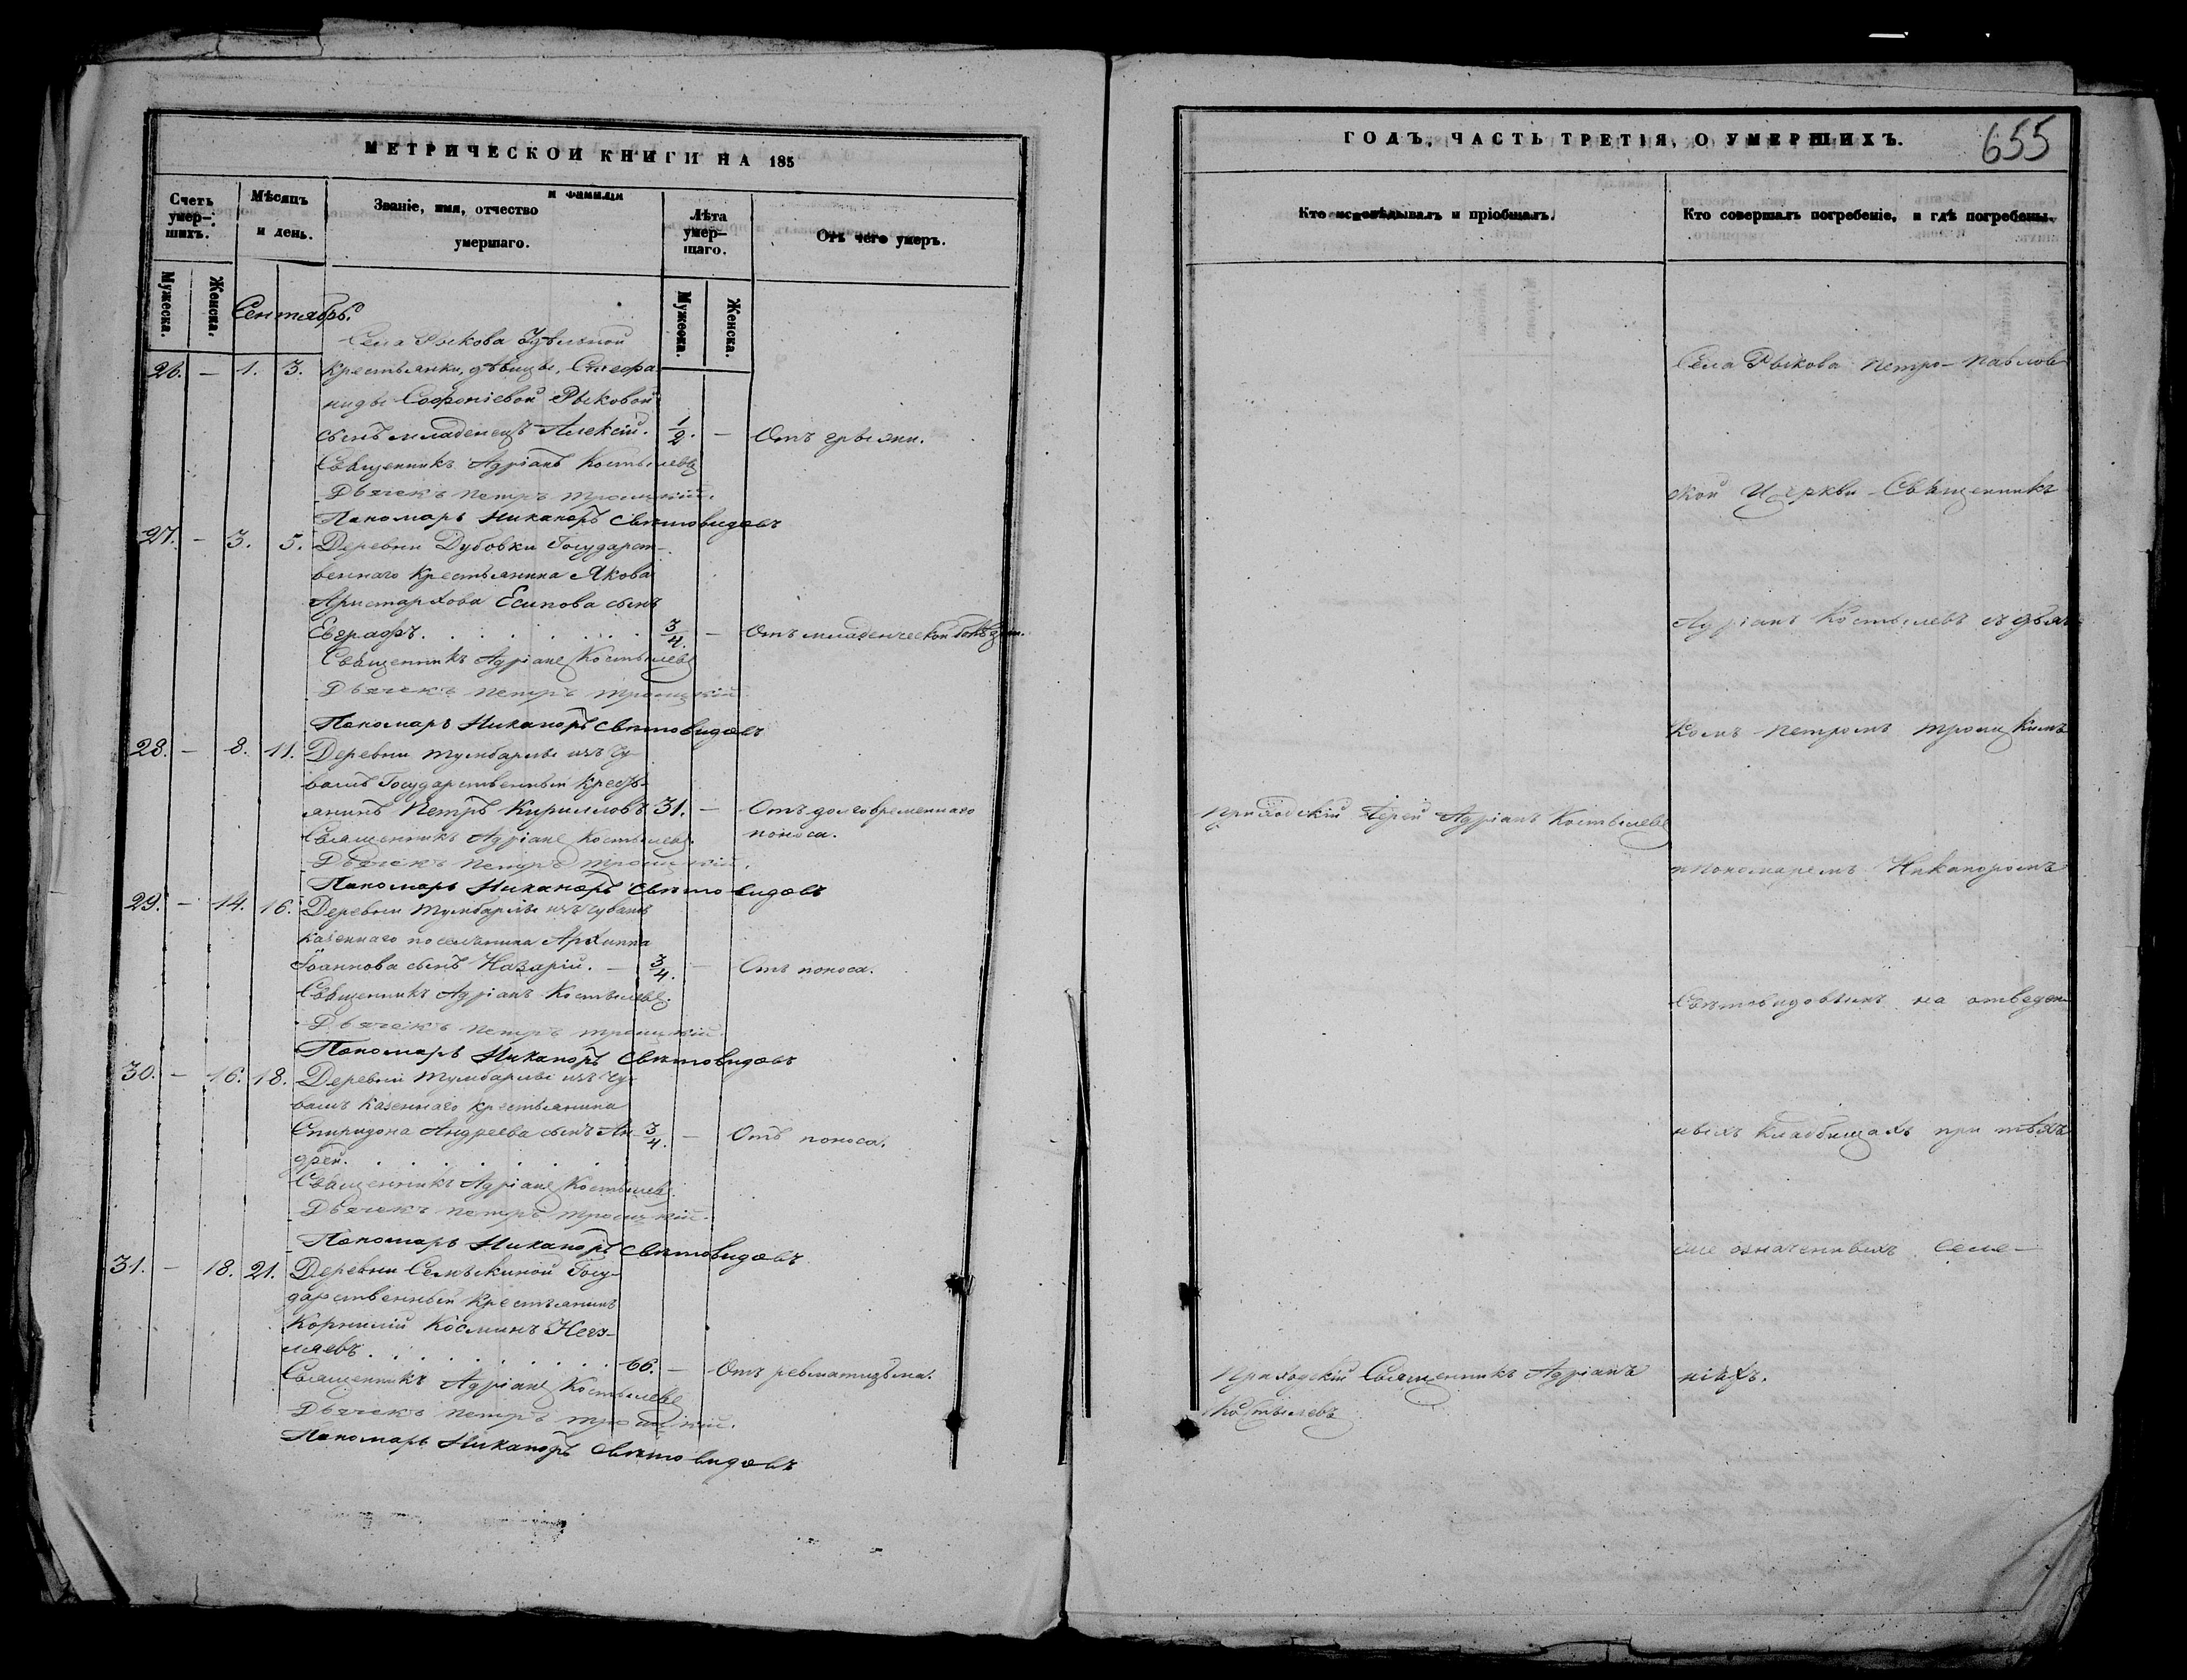 МЕТРИЧЕСКОЙ КНИГИ НА 185
Счетъ умер-шихъ.
Мѣсяцъ и день.
Званіе, имя, отчество и фамилія умершаго.
Лѣта умер-шаго.
Отъ чего умеръ.
Мужеска.
Женска.
Мужеска.
Женска.
Сентябрь.
Села Рыкова Удѣльной
26. — 1. 3. крестьянки, дѣвицы, Стефа
ниды Софроніевой Рыковой
сынъ младенецъ Алексій. 1/2. — Отъ грыжи.
Священникъ Адріанъ Костылевъ
Дьячекъ Петръ Троицкій.
Пономарь Никаноръ Святовидовъ
27. — 3. 5. Деревни Дубовки Государст-
веннаго крестьянина Якова
Аристархова Есипова сынъ
Евграфъ. 3/4. — Отъ младенческой болѣзни.
Священникъ Адріанъ Костылевъ
Дьячекъ Петръ Троицкій
Пономарь Никаноръ Святовидовъ
28. — 8. 11. Деревни Тумбарлы изъ Чу
вашъ Государственный кресть-
янинъ Петръ Кирилловъ 31. — Отъ долговременнаго
поноса.
Священникъ Адріанъ Костылевъ.
Дьячекъ Петръ Троицкій.
Пономарь Никаноръ Святовидовъ
29. — 14. 16. Деревни Тумбарлы изъ чувашъ
казеннаго поселянина Архиппа
Іоаннова сынъ Назарій. — 3/4. — Отъ поноса.
Священникъ Адріанъ Костылевъ.
Дьячекъ Петръ Троицкій.
Пономарь Никаноръ Святовидовъ
30. — 16. 18. Деревни Тумбарлы изъ Чу-
вашъ казеннаго крестьянина
Спиридона Андреева сынъ Ан- 3/4. — Отъ поноса.
дрей.
Священникъ Адріанъ Костылевъ.
Дьячекъ Петръ Троицкій.
Пономарь Никаноръ Святовидовъ
31. — 18. 21. Деревни Государственный крестьянинъ
Корнилій Косминъ
66. — Отъ ревматизма.
Священникъ Адріанъ Костылевъ
Дьячекъ Петръ Троицкій.
Пономарь Никаноръ Святовидовъ
ГОДЪ, ЧАСТЬ ТРЕТІЯ, О УМЕРШИХЪ.
655
Кто исповѣдывалъ и пріобщалъ.
Кто совершалъ погребеніе, и гдѣ погребены.
Приходскій Іерей Адріанъ Костылевъ
Приходскій Священникъ Адріанъ
Костылевъ
Села Рыкова Петро-Павлов
ской Церкви Священникъ
Адріанъ Костылевъ съ дьяч
комъ Петромъ Троицкимъ
и пономаремъ Никаноромъ
Святовидовымъ на отведен
ныхъ кладбищахъ при тѣхъ
же означенныхъ селе-
ніяхъ.